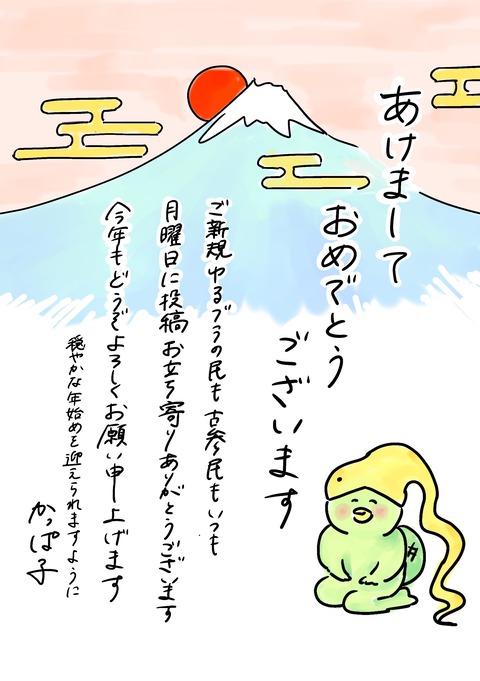 あけまして
おめでとう
ございます
ご新規ゆるブラの民も古参民もいつも
月曜日に投稿お立ち寄りありがとうございます
今年もどうぞよろしくお願い申し上げます
穏やかな年始めを迎えられますように
かっぱ子